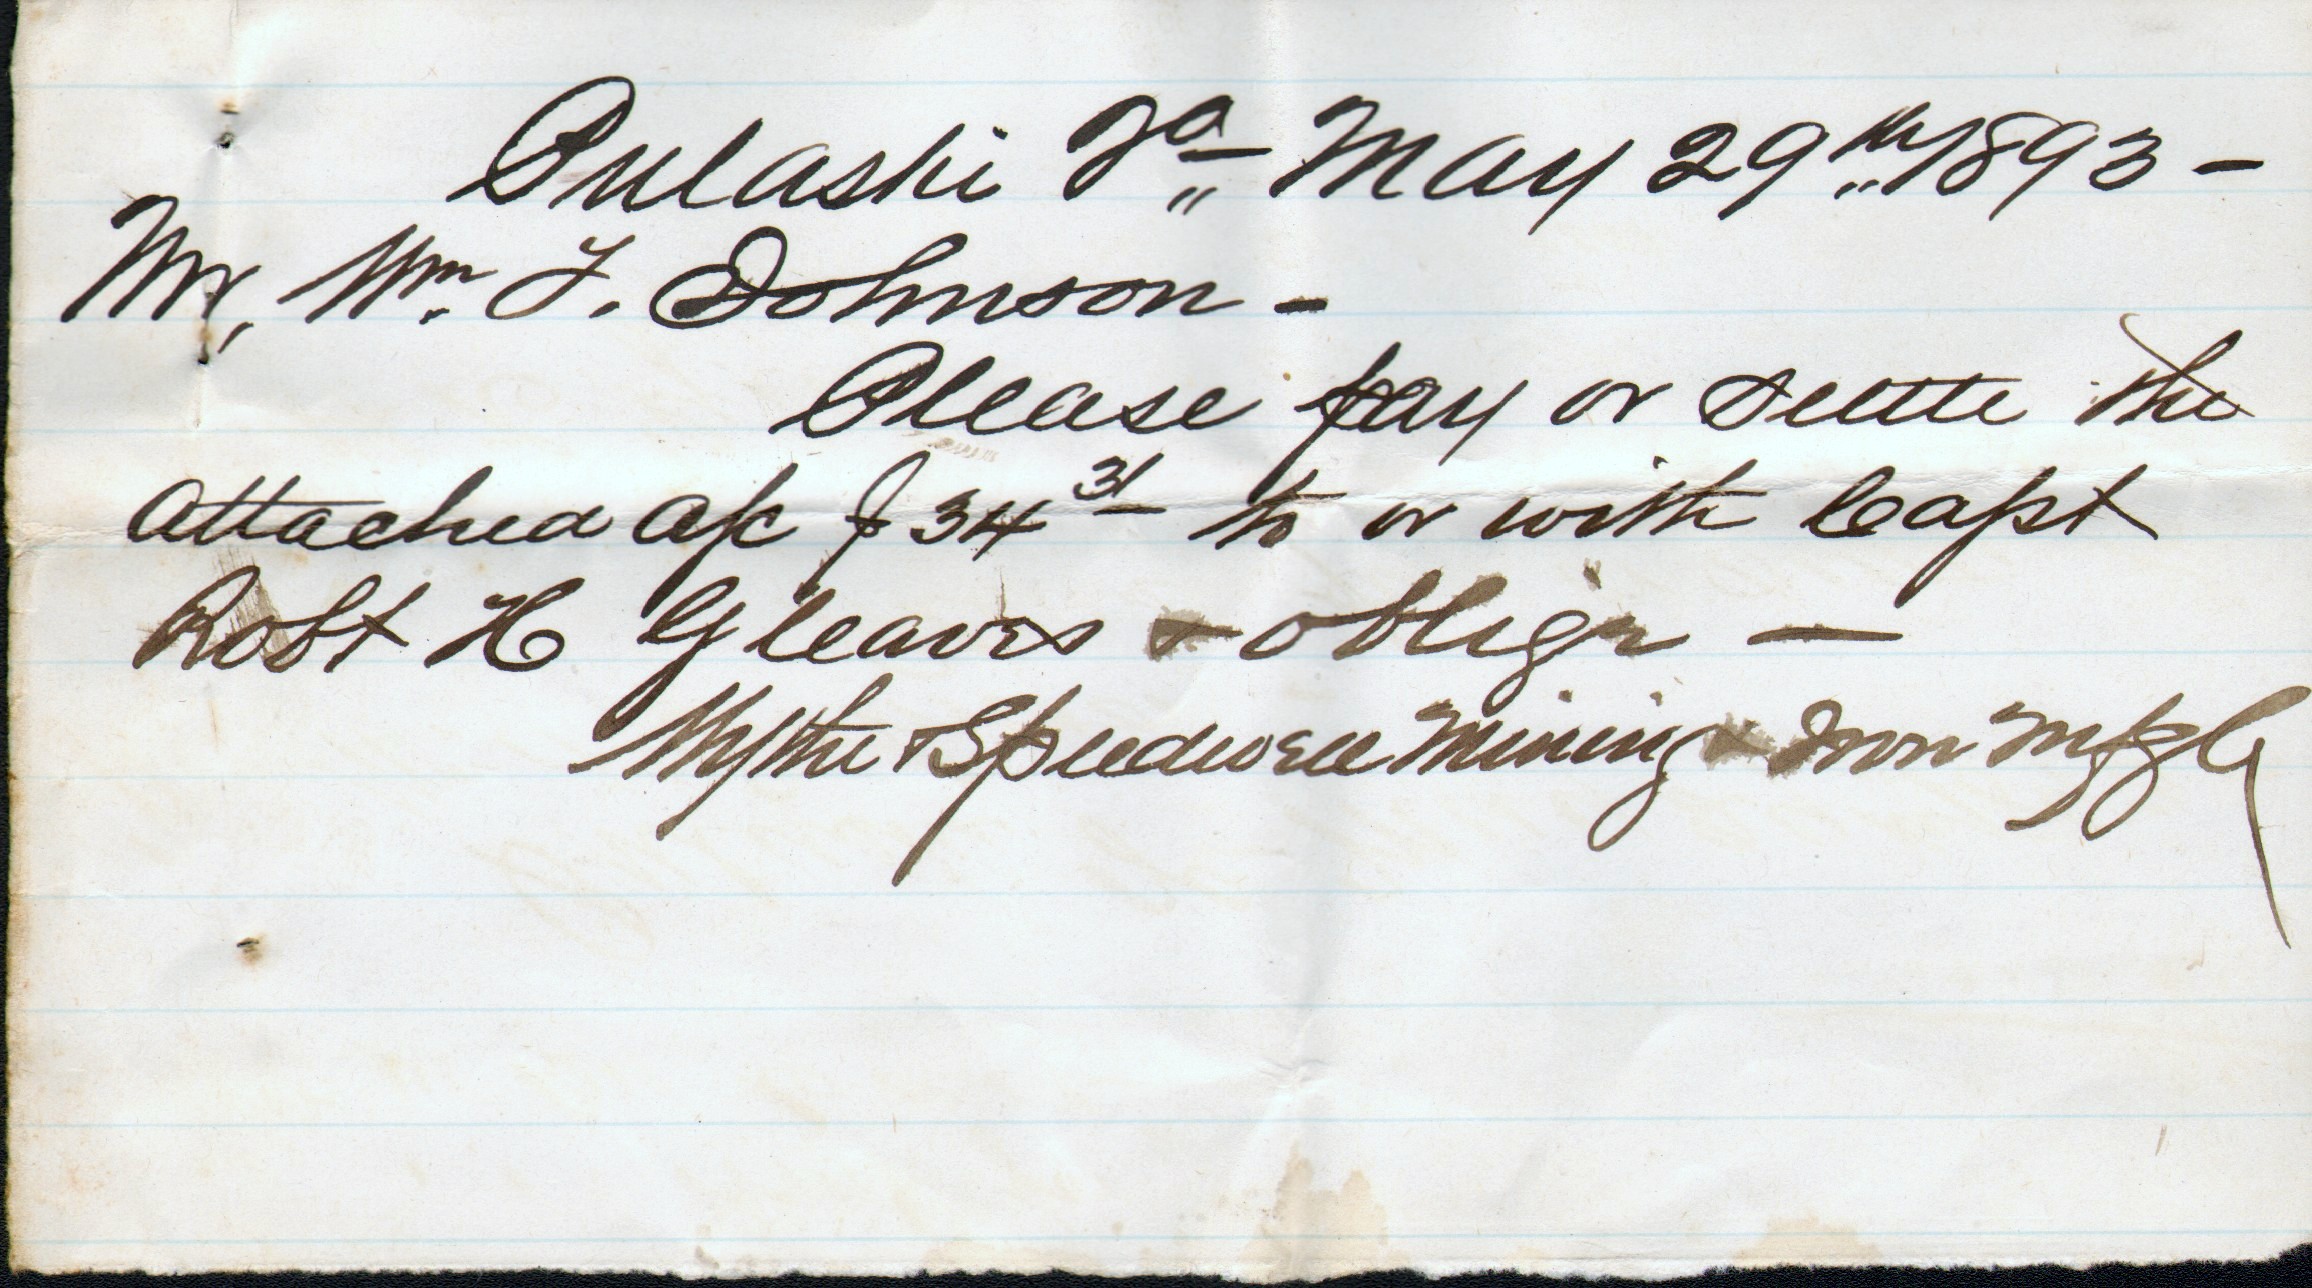 Pulaski Va May 29th 1893 -
Mr, Wm. F. Johnson -
Please pay or settle the
attached a/c $34 31 to or with Capt
Robt H Gleaves & oblige —
Wythe Speedwell Mining & Iron Mfg Co